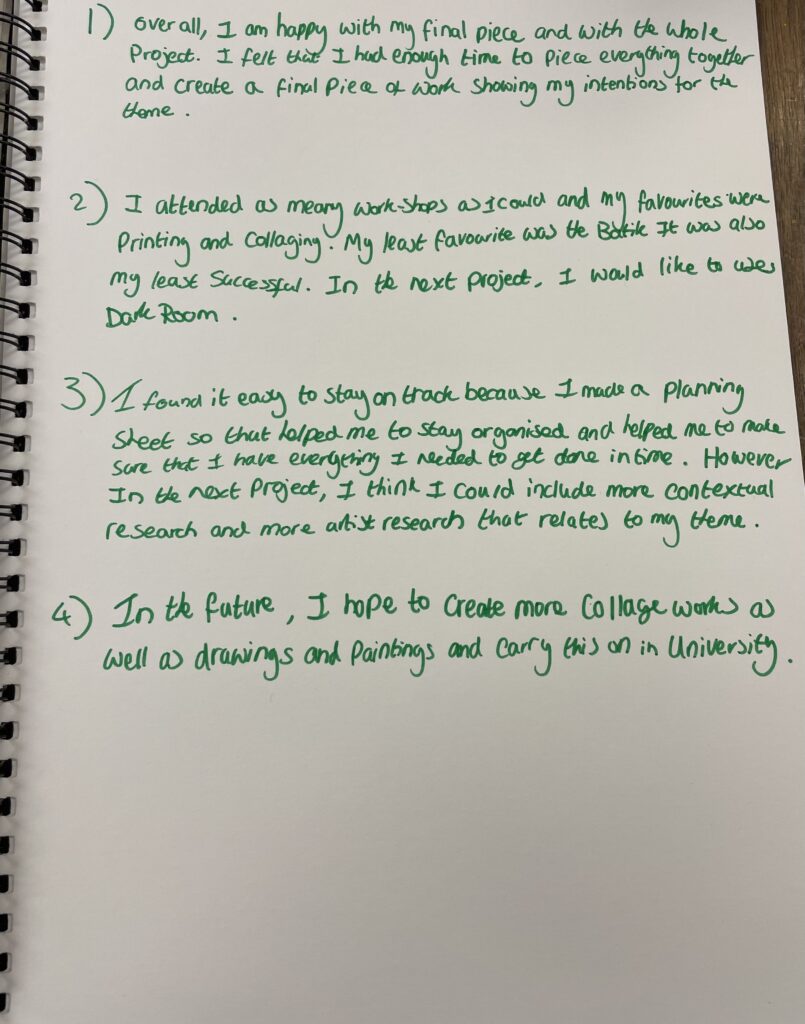 1) Overall, I am happy with my final piece and with the whole
Project. I felt that I had enough time to piece everything together
and create a final piece of work showing my intentions for the
theme.
2) I attended as meany work-shops as I could and my favourites were
Printing and Collaging. My least favourite was the Batik It was also
my least Successful. In the next project, I would like to uses
Dark Room.
3) I found it easy to stay on track because I made a planning
Sheet so that helped me to stay organised and helped me to make
sure that I have everything I needed to get done in time. However
In the next Project, I think I could include more contextual
research and more artist research that relates to my theme.
4) In the future, I hope to create more Collage works as
well as drawings and Paintings and carry this on in University.